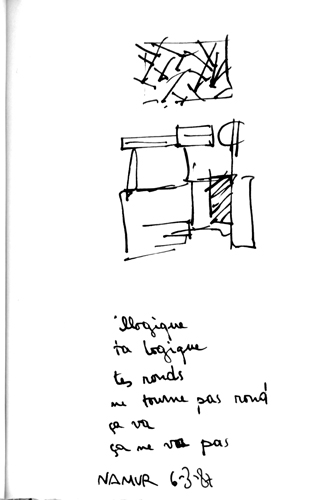 illogique
ta logique
tes ronds
ne tourne pas rond
ça va
ça ne va pas
NAMUR 6-3-87